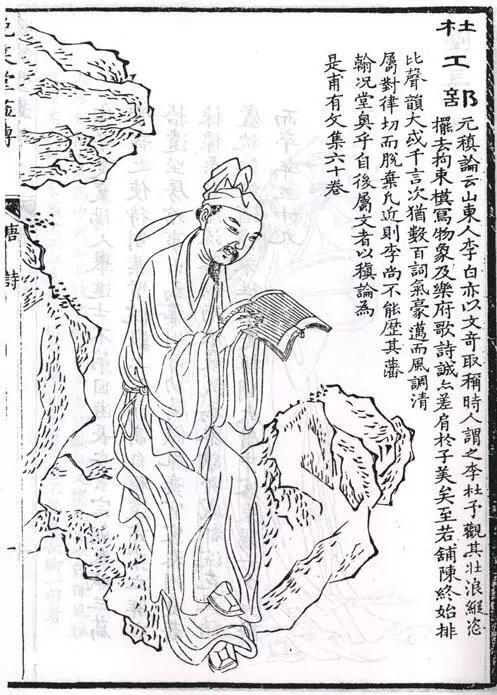 杜工部
元稹論云山東人李白亦以文奇取稱時人謂之李杜予觀其壯浪縱恣
擺去拘束模寫物象及樂府歌詩誠亦差肩於子美矣至若鋪陳終始排
比聲韻大或千言次猶數百詞氣豪邁而風調清
屬對律切而脫棄凡近則李尚不能歷其藩
翰況堂奧乎自後屬文者以稹論為
是甫有文集六十卷
笑堂畫傳
唐 詩
一